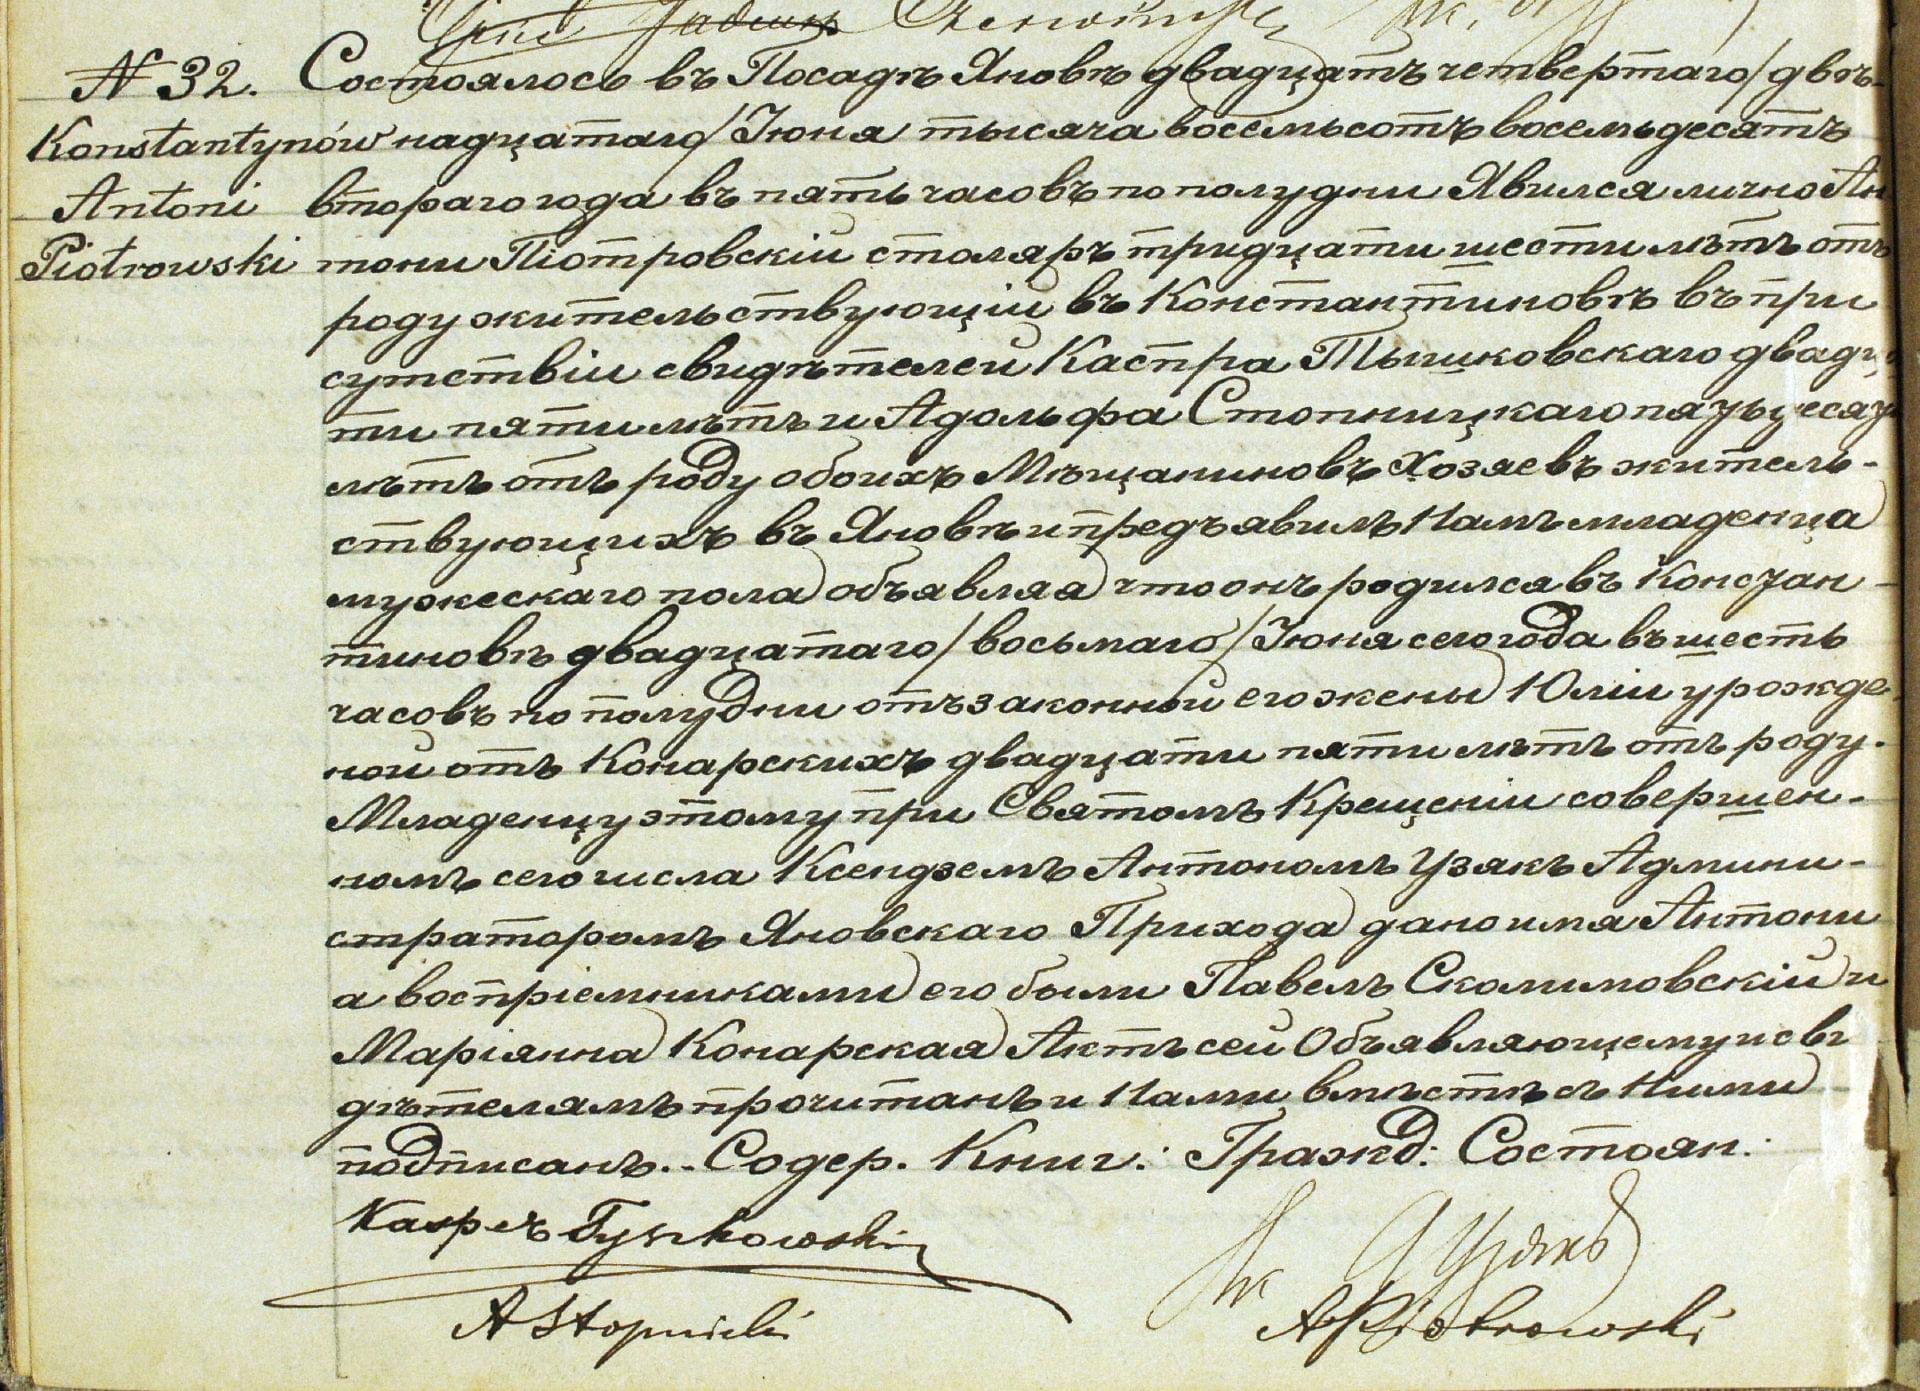 № 32. Состоялось въ Посадѣ Яновѣ двадцать четвертаго/двѣ-
Konstantynów надцатаго/Іюня тысяча восемьсотъ восемьдесятъ
Antoni втораго года въ пять часовъ по полудни Явился лично Ан
Piotrowski тони Піотровскій столяръ тридцати шести лѣтъ отъ
роду жительствующій въ Константиновѣ въ при
сутствіи свидѣтелей Каспра Тышковскаго двадца
ти пяти лѣтъ и Адольфа Стопницкаго пятьдесят
лѣтъ отъ роду обоихъ Мѣщаниновъ Хозяевъ житель-
ствующихъ въ Яновѣ и предъявилъ Намъ младенца
мужескаго пола объявляя что онъ родился въ Констан-
тиновѣ двадцатаго/восьмаго/Іюня сего года въ шесть
часовъ по полудни отъ законной его жены Юліи урожде
ной отъ Конарскихъ двадцати пяти лѣтъ отъ роду.
Младенцу этому при Святомъ Крещеніи совершен-
номъ сего числа Ксендземъ Антономъ Узякъ Админи-
страторомъ Яновскаго Прихода дано имя Антони
а воспріемниками его были Павелъ Сколимовскій и
Маріянна Конарская Актъ сей Объявляющему и сви
дѣтелямъ прочитанъ и Нами вмѣстѣ съ Ними
подписанъ.. Содер. Книг: Гражд: Состоян:
Kasper Tyszkowski
A Stopnicki
A Piotrowski